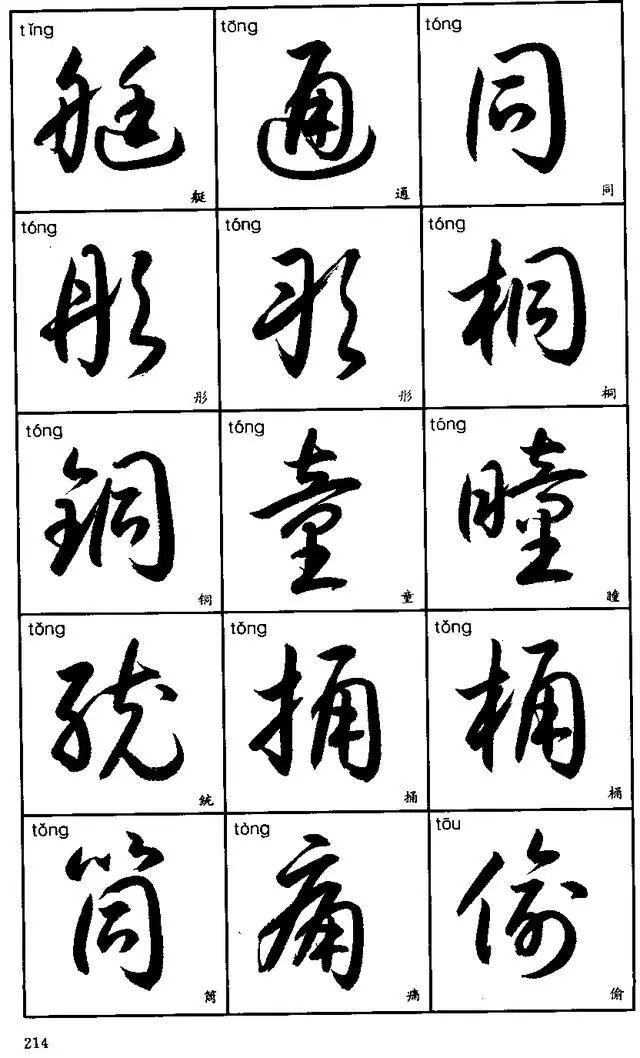 tǐng tōng tóng
艇 通 同
艇 通 同
tóng tóng tóng
彤 彤 桐
彤 彤 桐
tóng tóng tóng
銅 童 瞳
铜 童 瞳
tǒng tǒng tǒng
統 捅 桶
統 捅 桶
tǒng tòng tōu
筒 痛 偷
筒 痛 偷
214